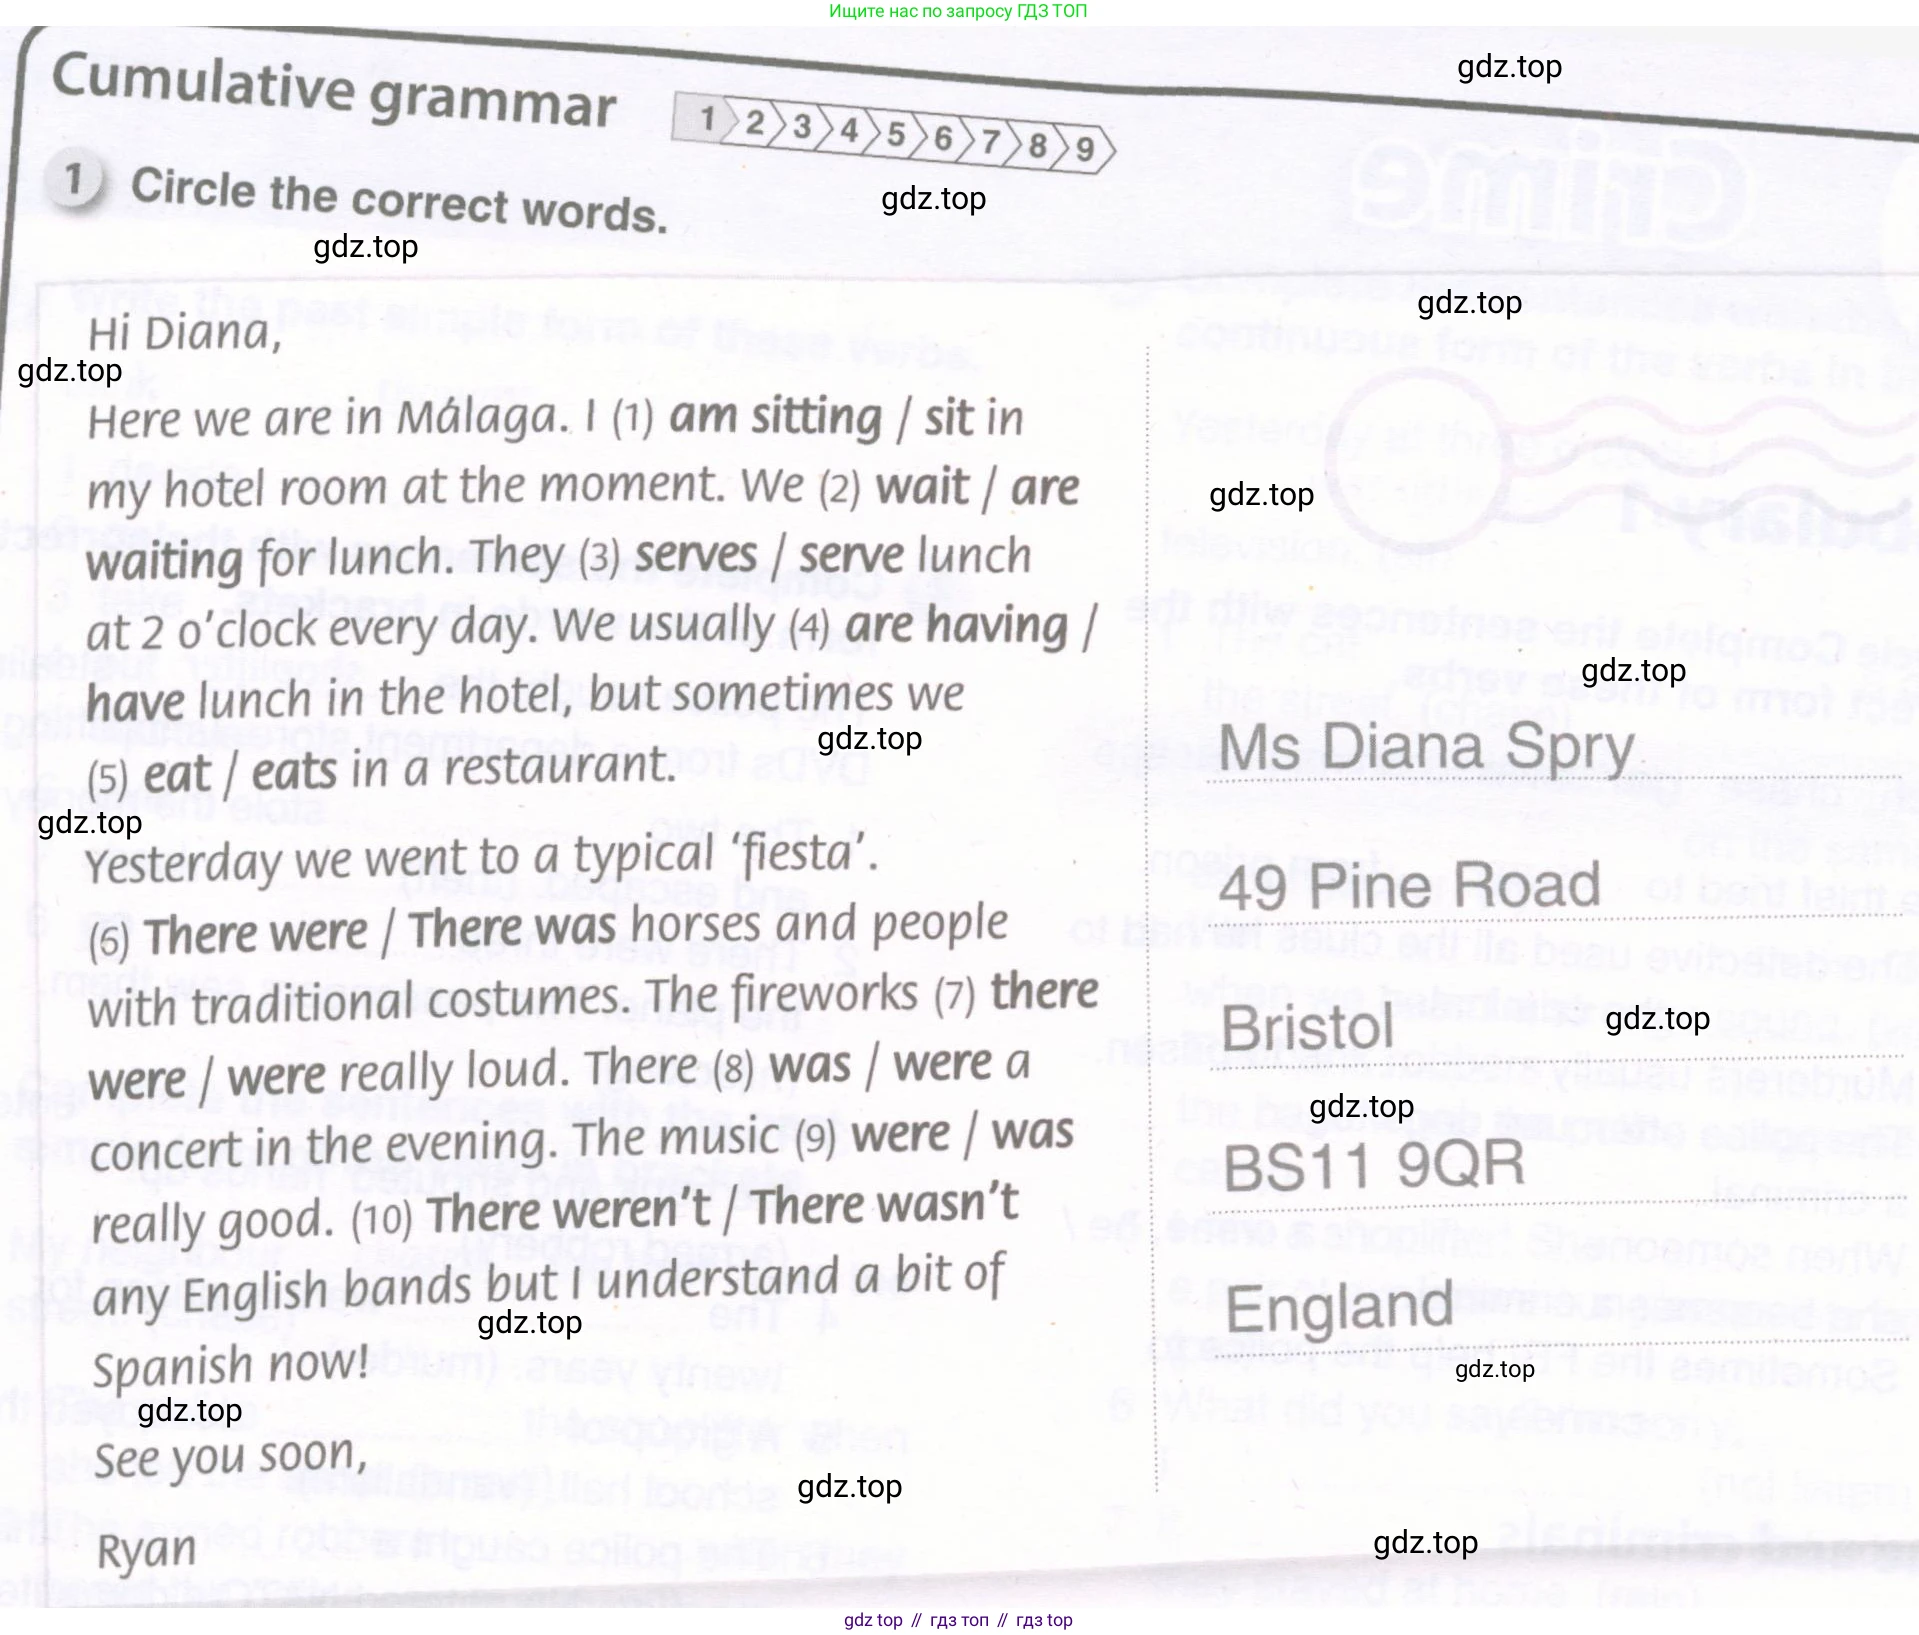 Ищите нас по запросу ГДЗ ТОП
gdz.top
Cumulative grammar
1 2 3 4 5 6 7 8 9
1 Circle the correct words.
gdz.top
gdz.top
gdz.top
Hi Diana,
gdz.top
Here we are in Málaga. I (1) am sitting / sit in
my hotel room at the moment. We (2) wait / are
gdz.top
waiting for lunch. They (3) serves / serve lunch
at 2 o'clock every day. We usually (4) are having /
gdz.top
have lunch in the hotel, but sometimes we
gdz.top
(5) eat / eats in a restaurant.
gdz.top
Yesterday we went to a typical ‘fiesta’.
(6) There were / There was horses and people
with traditional costumes. The fireworks (7) there
were / were really loud. There (8) was / were a
concert in the evening. The music (9) were / was
really good. (10) There weren't / There wasn't
any English bands but I understand a bit of
gdz.top
Spanish now!
gdz.top
See you soon,
gdz.top
Ryan
Ms Diana Spry
49 Pine Road
Bristol
gdz.top
gdz.top
BS11 9QR
England
gdz.top
gdz.top
gdz top // гдз топ // гдз top